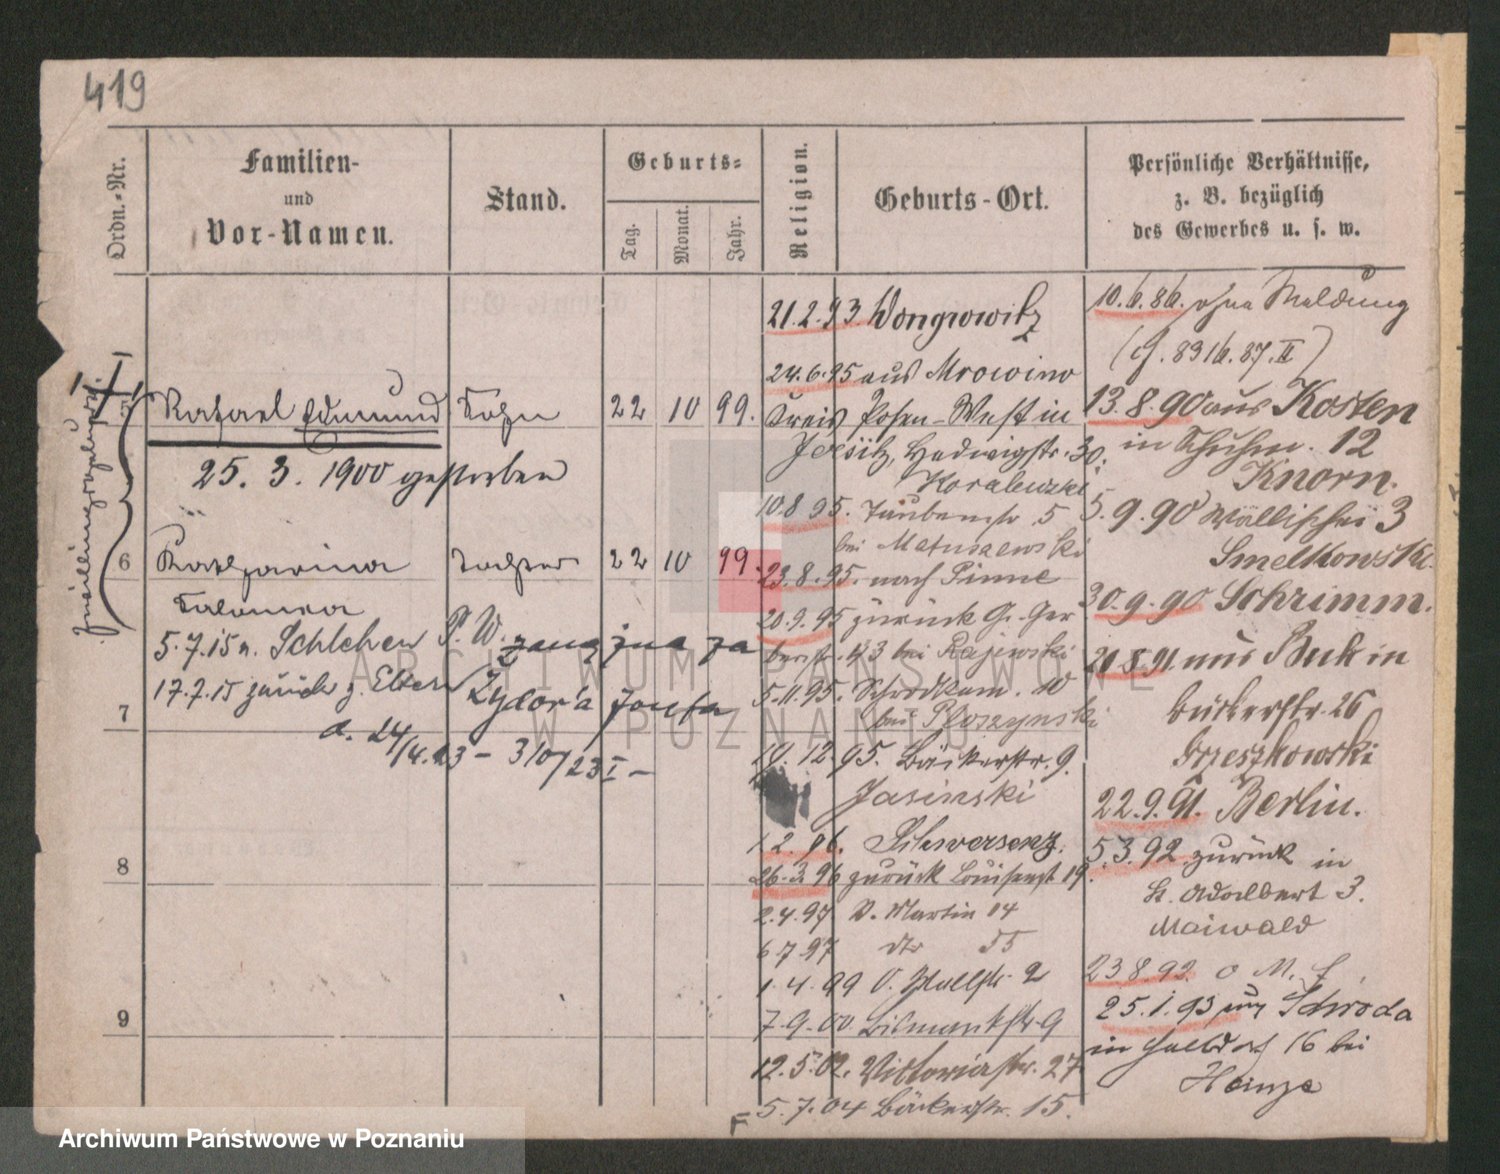 419
Ordn.-Nr.
Familien-
und
Vor-Namen.
Stand.
Geburts-
Tag.
Monat.
Jahr.
Religion.
Geburts-Ort.
Persönliche Verhältnisse,
z. B. bezüglich
des Gewerbes u. s. w.
Rafael Edmund Sohn 22 10 99.
25. 3. 1900 gestorben
6 Katharina Tochter 22 10 99.
Salomea
5.7.15 n. Schlehen
17.7.15 zurück z. Eltern
P. W. żona
Izydor'a
7
d. 24/4.23 - 310/23 I -
8
9
21.2.93 Wongrowitz
24.6.95 aus Mrowino
Kreis Posen-West in
Jersitz, Hedwigstr. 30.
Koralewski
10.8.95. Taubenstr 5
bei Matuszewski
23.8.95. nach Pinne
20.9.95 zurück Gr. Ger
berstr. 43 bei Rajewski
5.11.95. 10
bei Ploszynski
19.12.95. Bäckerstr. 9.
Jasinski
1.2.96. Schwersenz.
26.3.96 zurück Louisenst 19.
2.4.97 S. Martin 04
6.7.97 dto 55
1.4.99 O. Wallstr. 2
7.9.00. Bismarckstr. 9
12.5.02. Viktoriastr. 27
5.7.04 Bäckerstr. 15.
10.6.86. ohne Meldung
(cf. 8316.87.II)
13.8.90 aus Kosten
in Schuhm. 12
Knorn.
5.9.90 Wallischei 3
Smelkowski.
30.9.90 Schrimm.
21.8.91 aus Buk in
Bäckerstr. 26
Grzeszkowski
22.9.91. Berlin.
5.3.92 zurück in
St. Adalbert 3.
Maiwald
23.8.92. o. M. f.
25.1.93 aus Schroda
in Halbdorf 16 bei
Heinze
ARCHIWUM PAŃSTWOWE
W POZNANIU
Archiwum Państwowe w Poznaniu